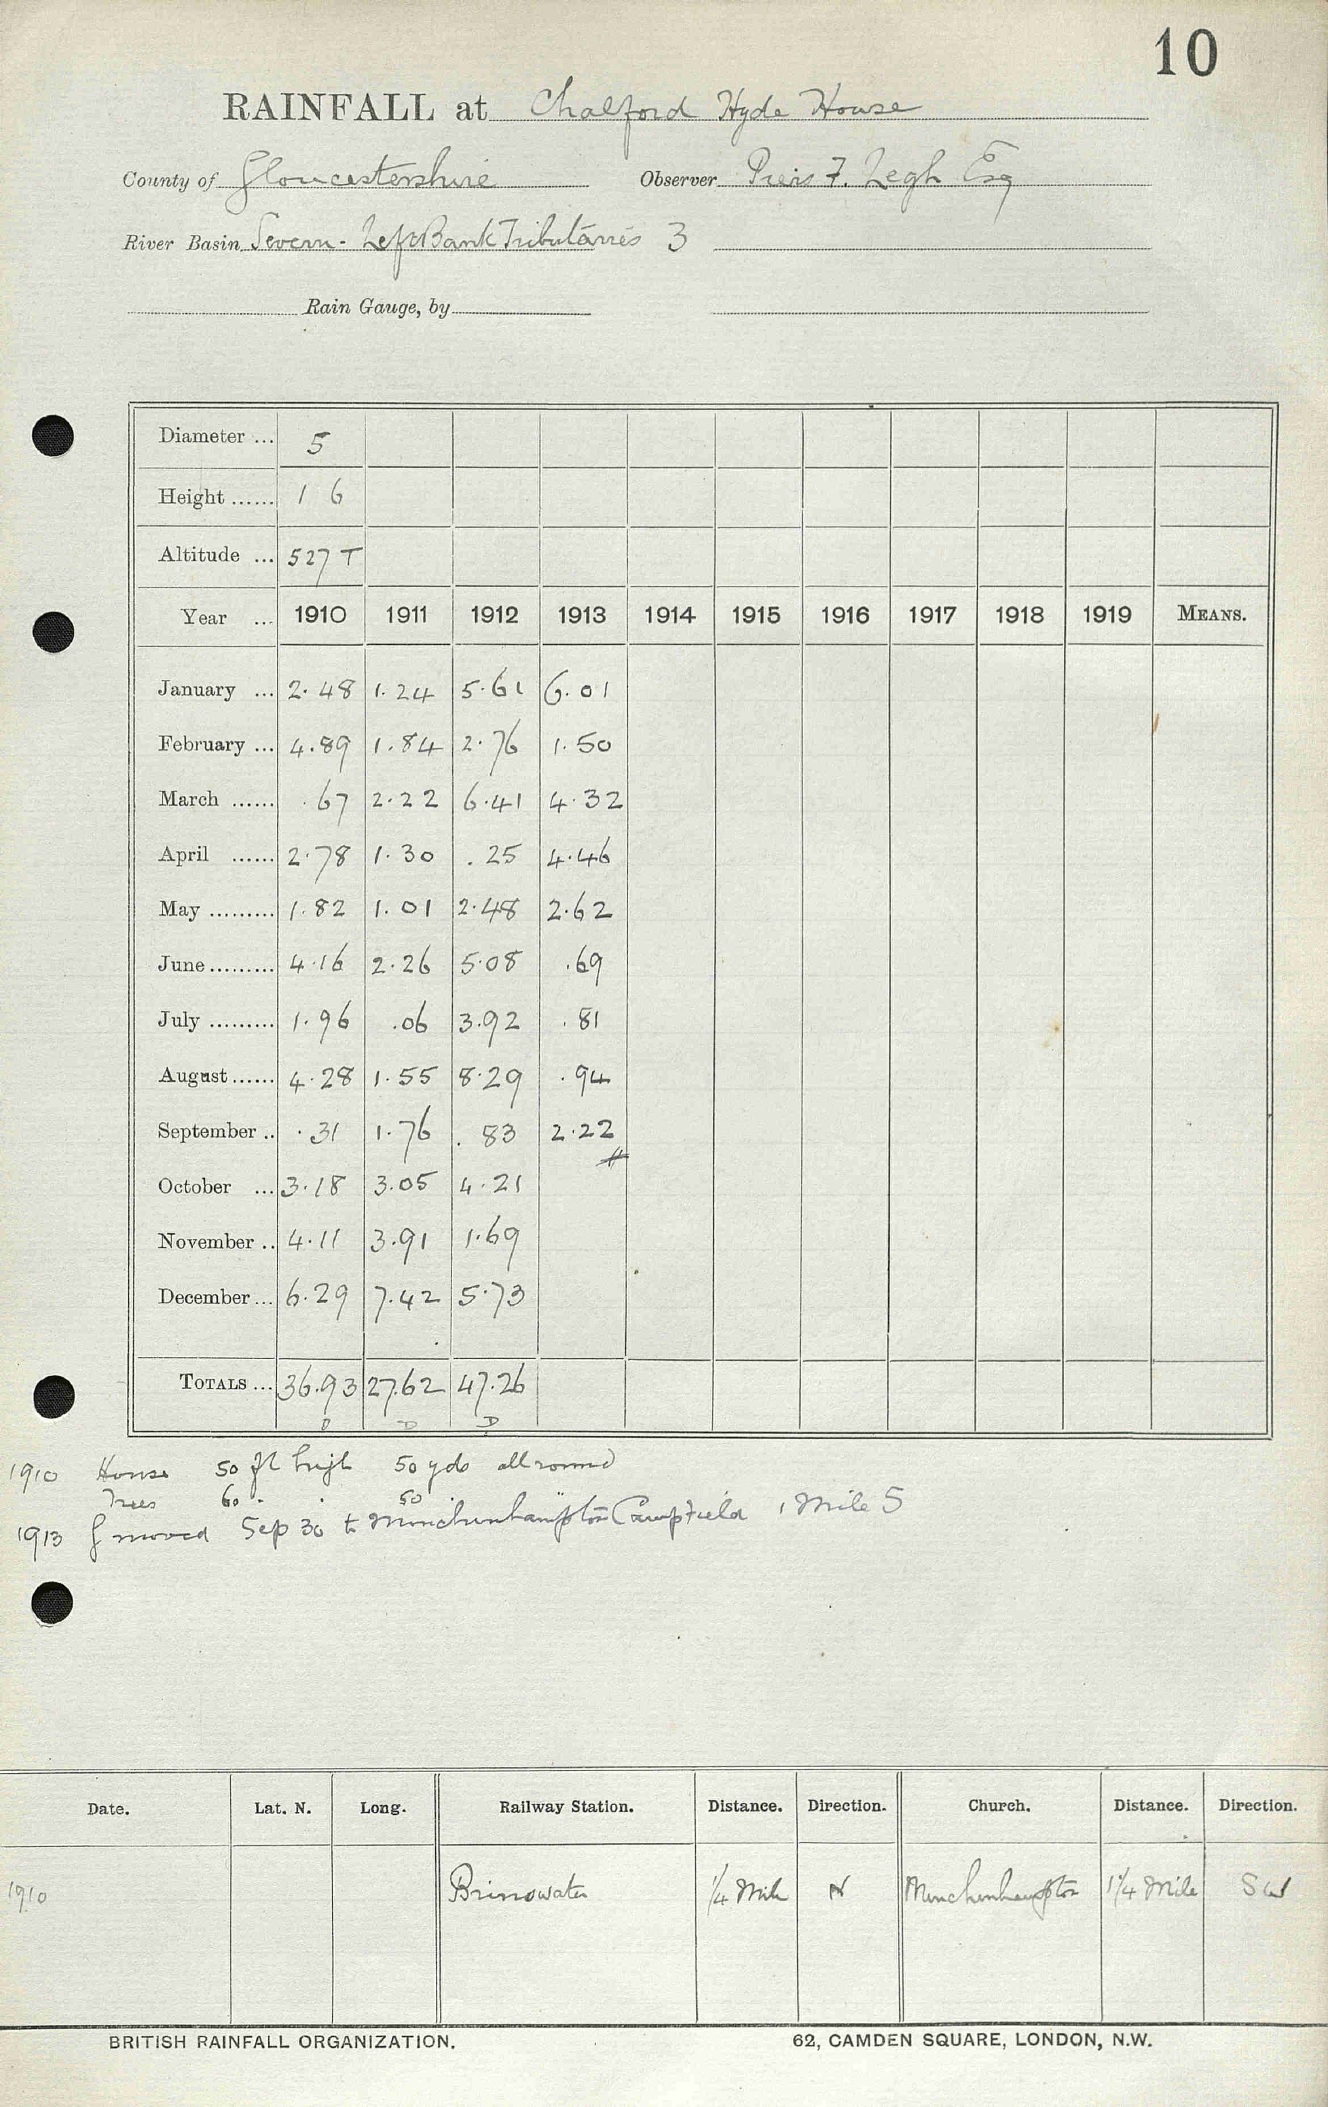 10
RAINFALL at Chalford Hyde House
County of Gloucestershire Observer Piers F. Legh Esq
River Basin Severn - Left Bank Tributaries 3
Rain Gauge, by
Diameter ... 5
Height ...... 1 6
Altitude ... 527 T
Year ... 1910 1911 1912 1913 1914 1915 1916 1917 1918 1919 MEANS.
January ... 2.48 1.24 5.61 6.01
February ... 4.89 1.84 2.76 1.50
March ...... .67 2.22 6.41 4.32
April ...... 2.78 1.30 .25 4.46
May ......... 1.82 1.01 2.48 2.62
June ......... 4.16 2.26 5.08 .69
July ......... 1.96 .06 3.92 .81
August ...... 4.28 1.55 8.29 .94
September .. .31 1.76 .83 2.22
October ... 3.18 3.05 4.21
November .. 4.11 3.91 1.69
December ... 6.29 7.42 5.73
TOTALS ... 36.93 27.62 47.26
D D D
1910 House 50 ft high 50 yds all round
Trees 60 " " 50 "
1913 G moved Sep 30 to Minchinhampton Camp Field 1 Mile S
Date. Lat. N. Long. Railway Station. Distance. Direction. Church. Distance. Direction.
1910 1/4 Mile N Minchinhampton 1 1/4 Mile SW
BRITISH RAINFALL ORGANIZATION. 62, CAMDEN SQUARE, LONDON, N.W.